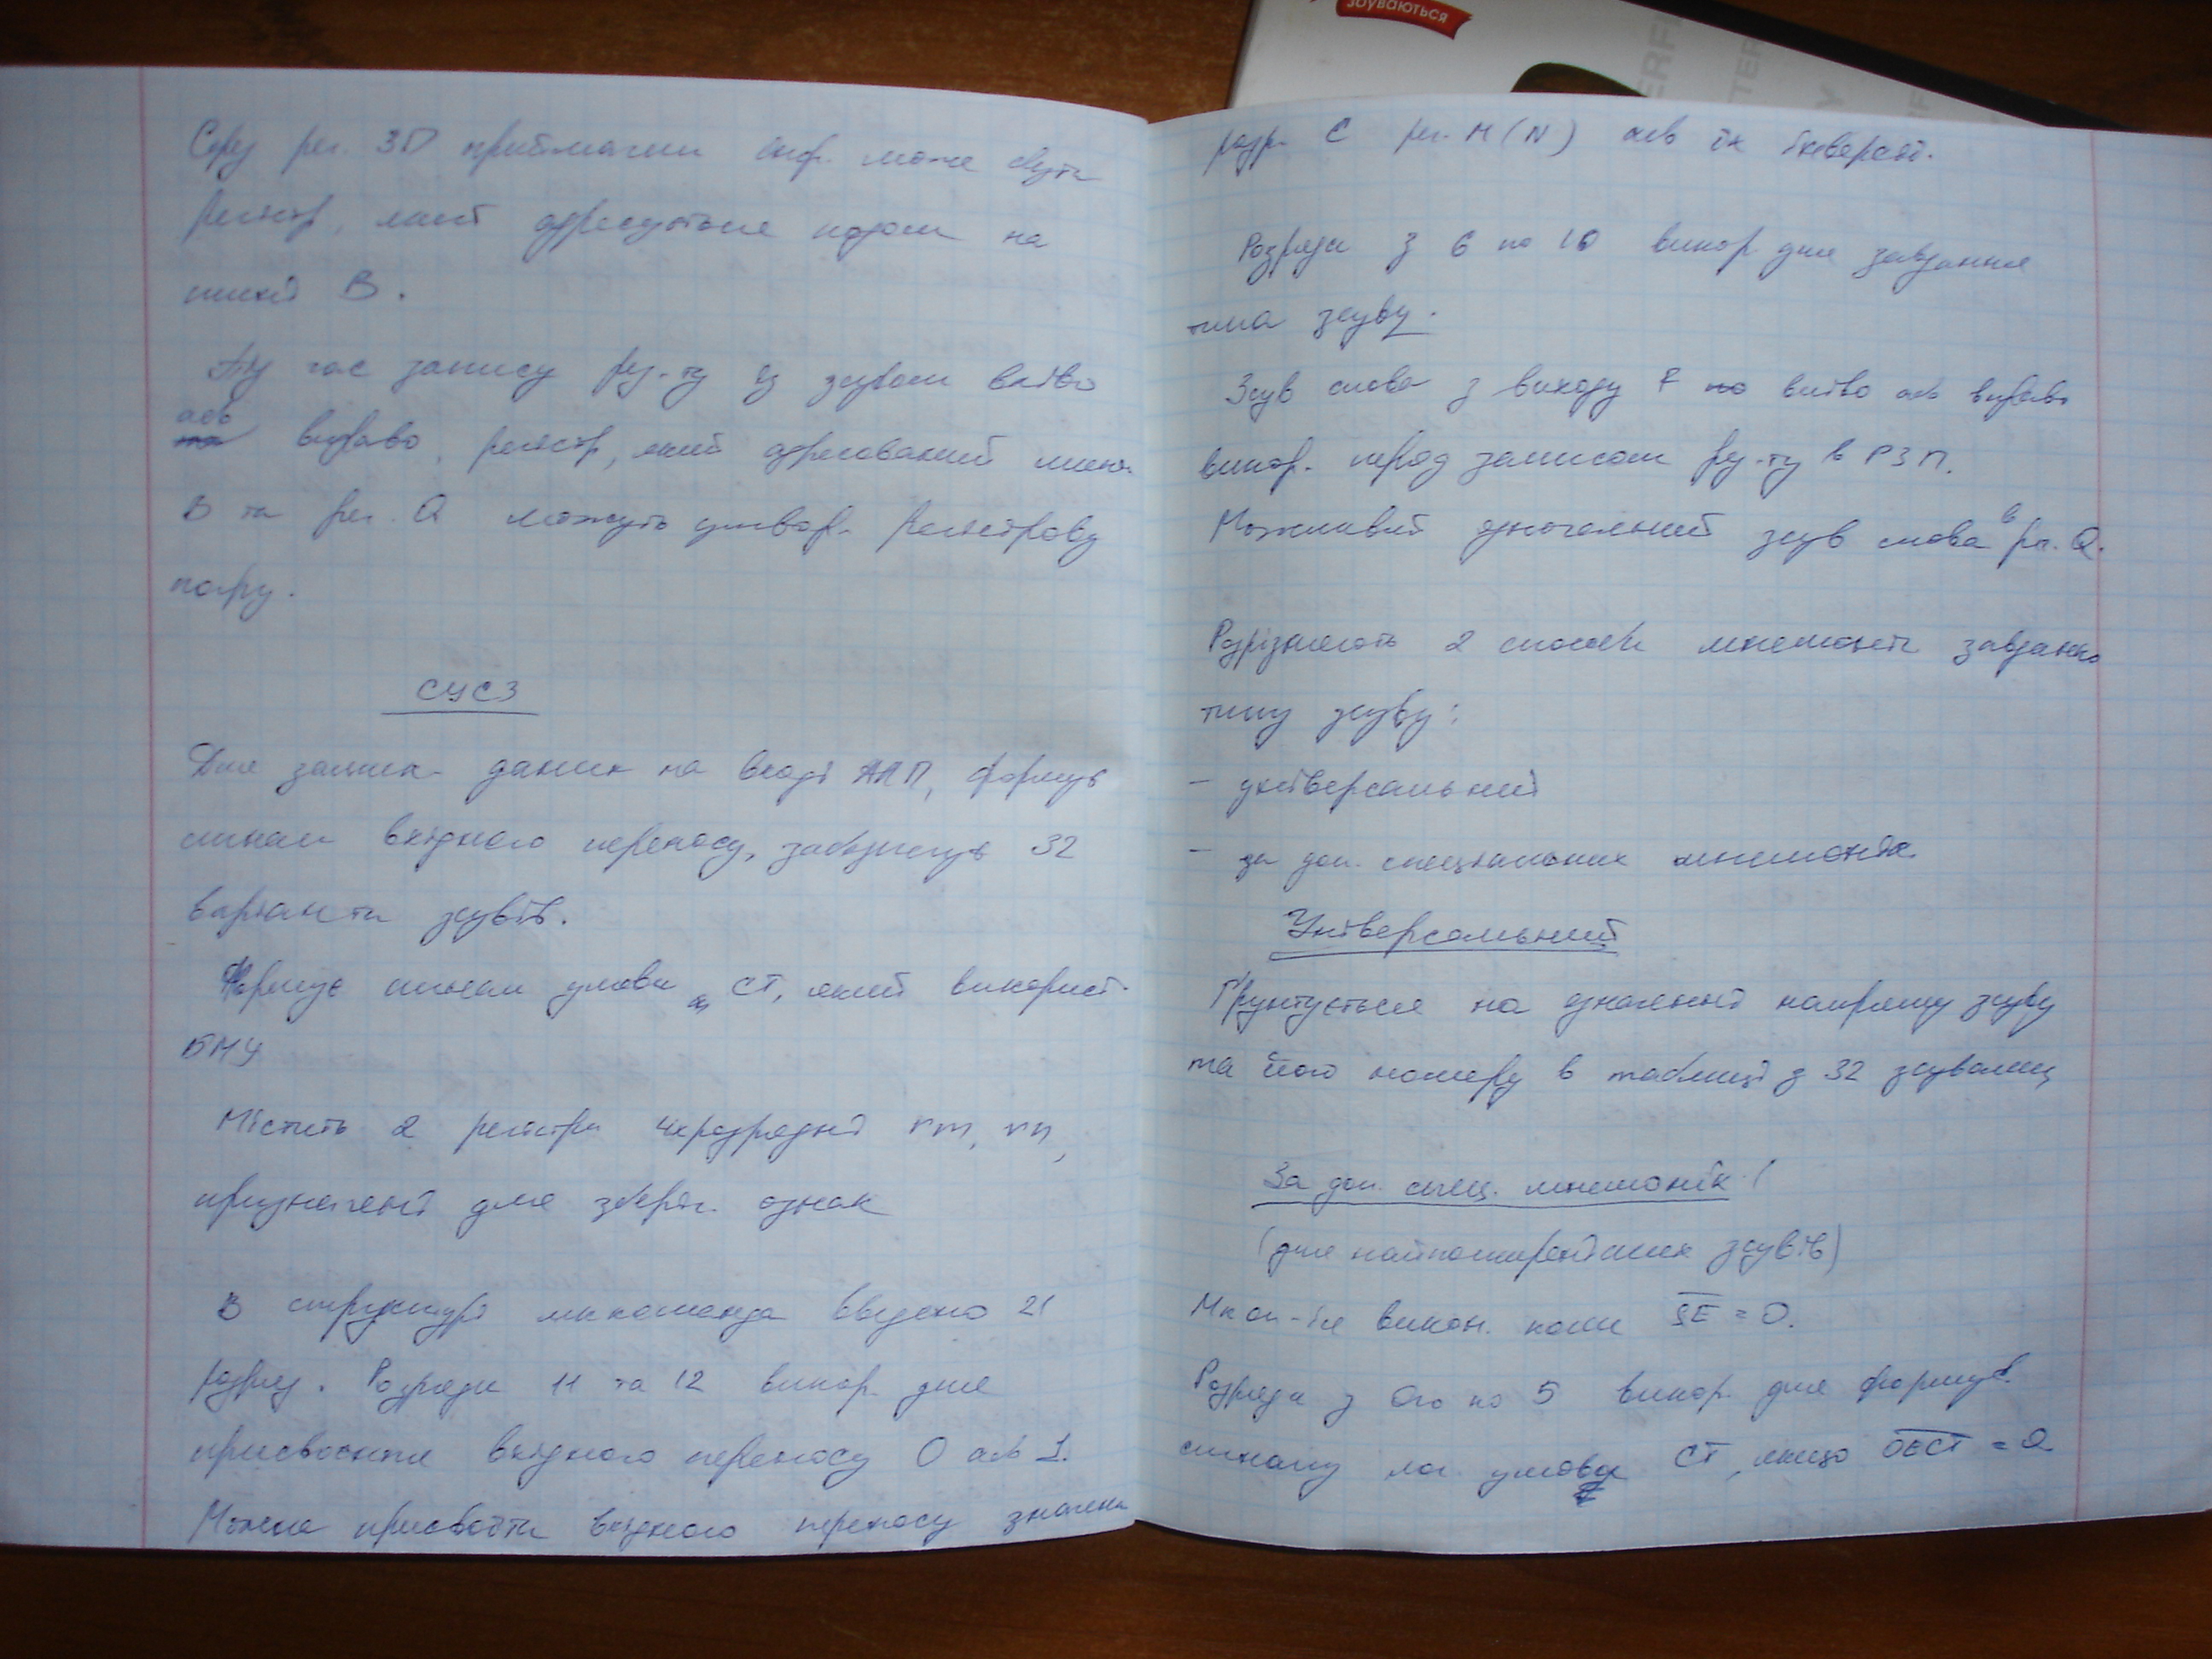 Серед рег. ЗП приймачем інф. може бути
регістр, який адресується кодом на
шині В.
Під час запису рез-ту із зсувом вліво
або вправо, регістр, який адресований шиною
В та рег. Q можуть утвор. регістрову
пару.
СУСЗ
Для даних на вході АЛП, формує
сигнал вхідного переносу, забезпечує 32
варіанти зсувів.
Формує сигнал умови СТ, який використ.
БМУ
Містить 2 регістри 4хрозрядні rm, rn,
призначені для зберіг. ознак
В структурі мікрокоманди введено 21
розряд. Розряди 11 та 12 викор. для
присвоєння вхідного переносу 0 або 1.
Можна присвоїти вхідного переносу значення
розр. С рег. М(N) або їх інверсій.
Розряди з 6 по 10 викор. для завдання
типа зсуву.
Зсув слова з виходу F вліво або вправо
викор. перед записом рез-ту в РЗП.
Можливий одночасний зсув слова в рг. Q.
Розрізняють 2 способи мнемоніки завдання
типу зсуву:
- універсальний
- за доп. спеціальних мнемонік
Універсальний
Ґрунтується на означенні напряму зсуву
та його номеру в таблиці з 32 зсувами
За доп. спец. мнемонік
(для найпоширеніших зсувів)
викон. коли S̅E̅ = 0.
Розряди з 0го по 5 викор. для формув.
сигналу лог. умови СТ, якщо O̅E̅C̅T̅ = 0
зуваються